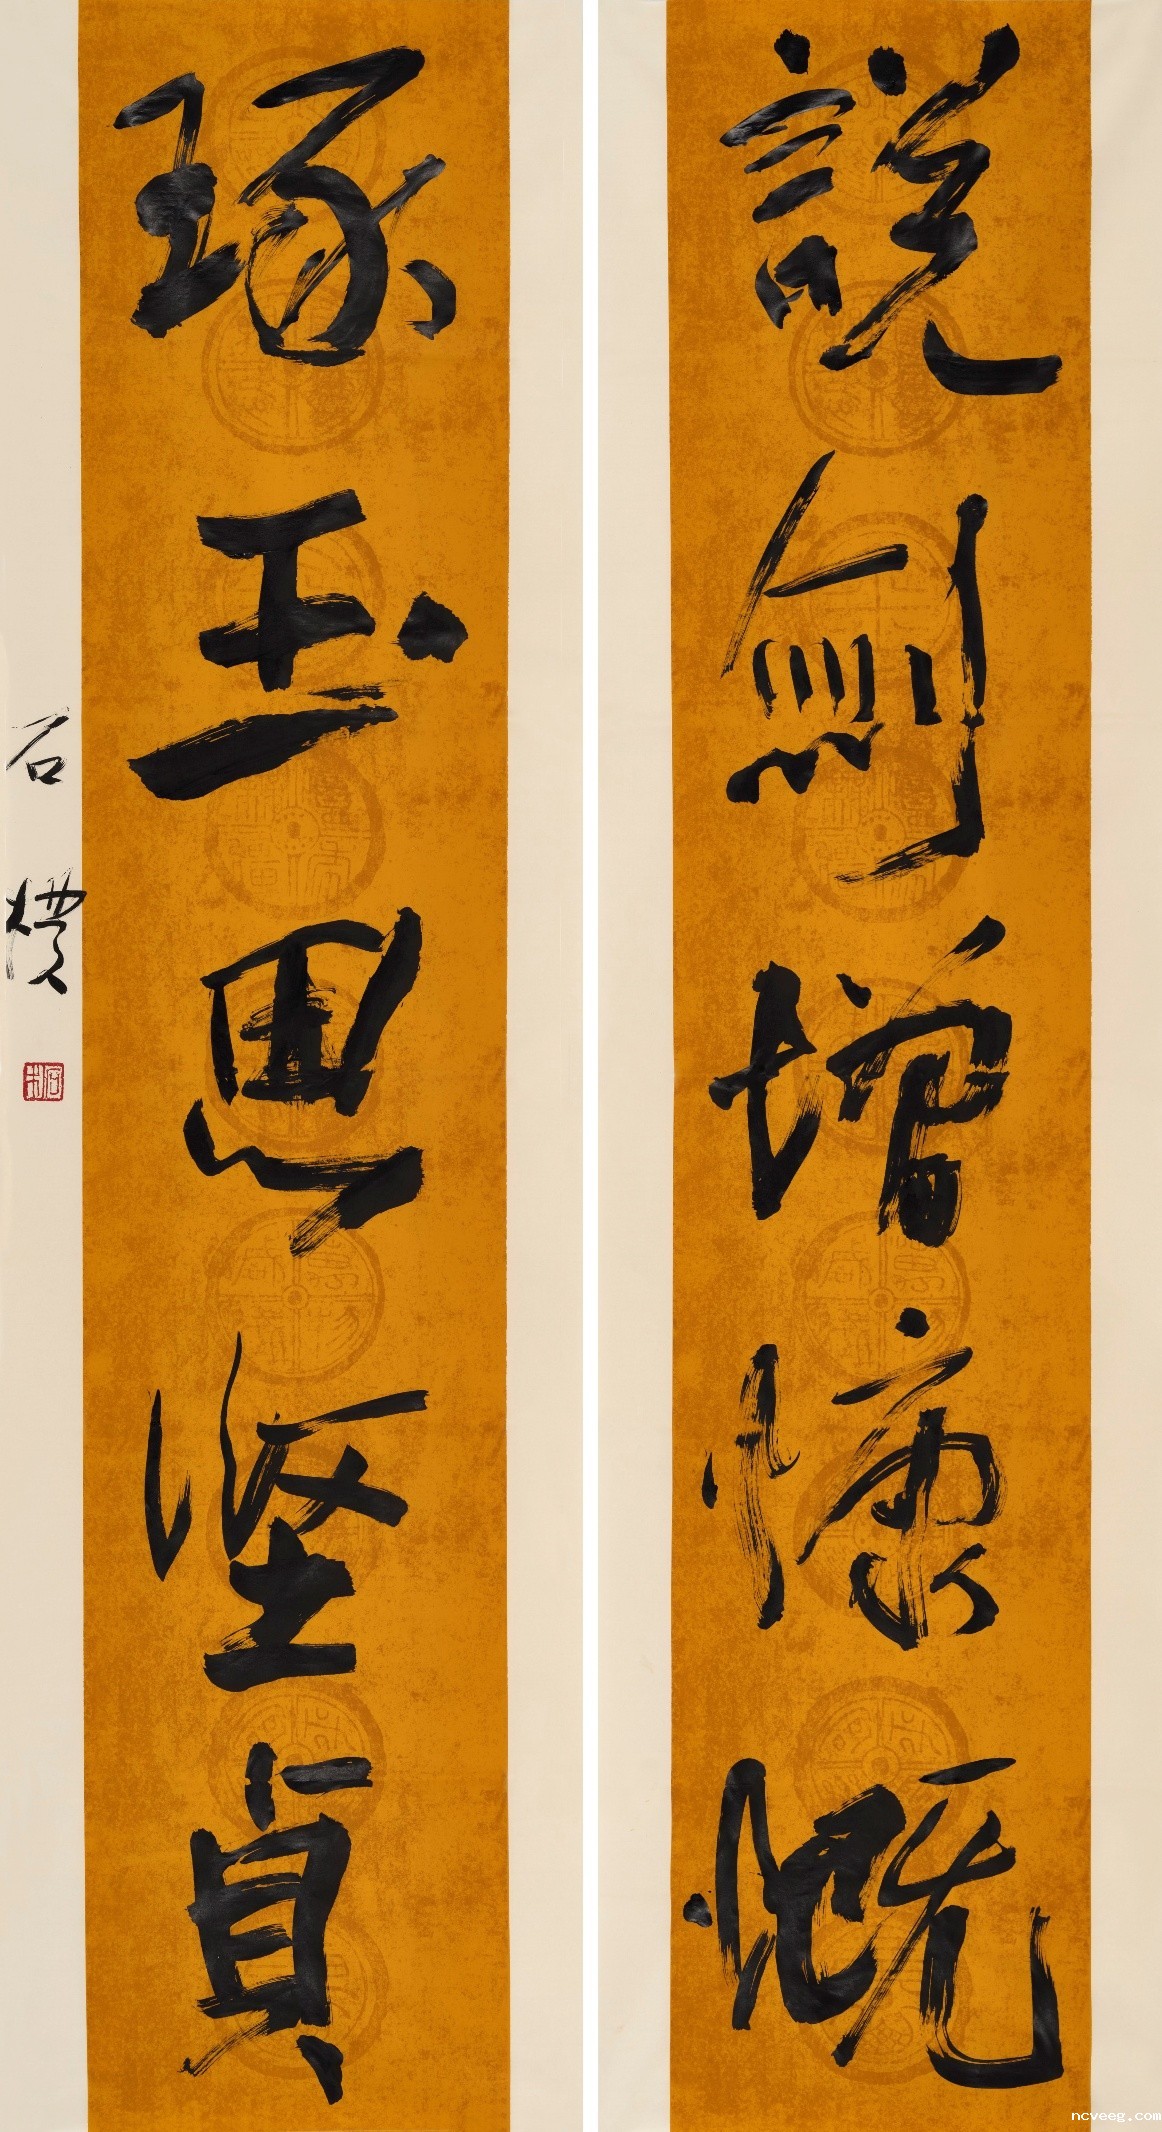 說劍增慷慨
琢玉思堅貞
石濮
ncveeg.com